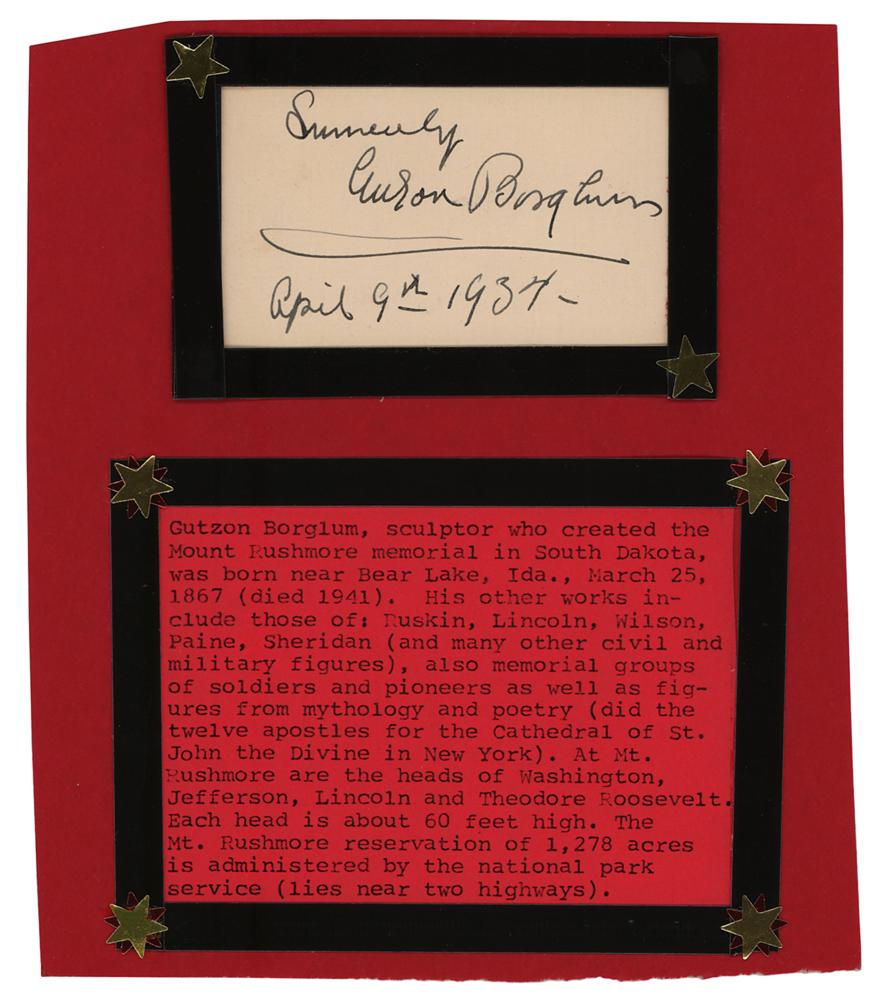 Sincerely
Gutzon Borglum
April 9th 1937-
Gutzon Borglum, sculptor who created the
Mount Rushmore memorial in South Dakota,
was born near Bear Lake, Ida., March 25,
1867 (died 1941).  His other works in-
clude those of: Ruskin, Lincoln, Wilson,
Paine, Sheridan (and many other civil and
military figures), also memorial groups
of soldiers and pioneers as well as fig-
ures from mythology and poetry (did the
twelve apostles for the Cathedral of St.
John the Divine in New York). At Mt.
Rushmore are the heads of Washington,
Jefferson, Lincoln and Theodore Roosevelt.
Each head is about 60 feet high. The
Mt. Rushmore reservation of 1,278 acres
is administered by the national park
service (lies near two highways).